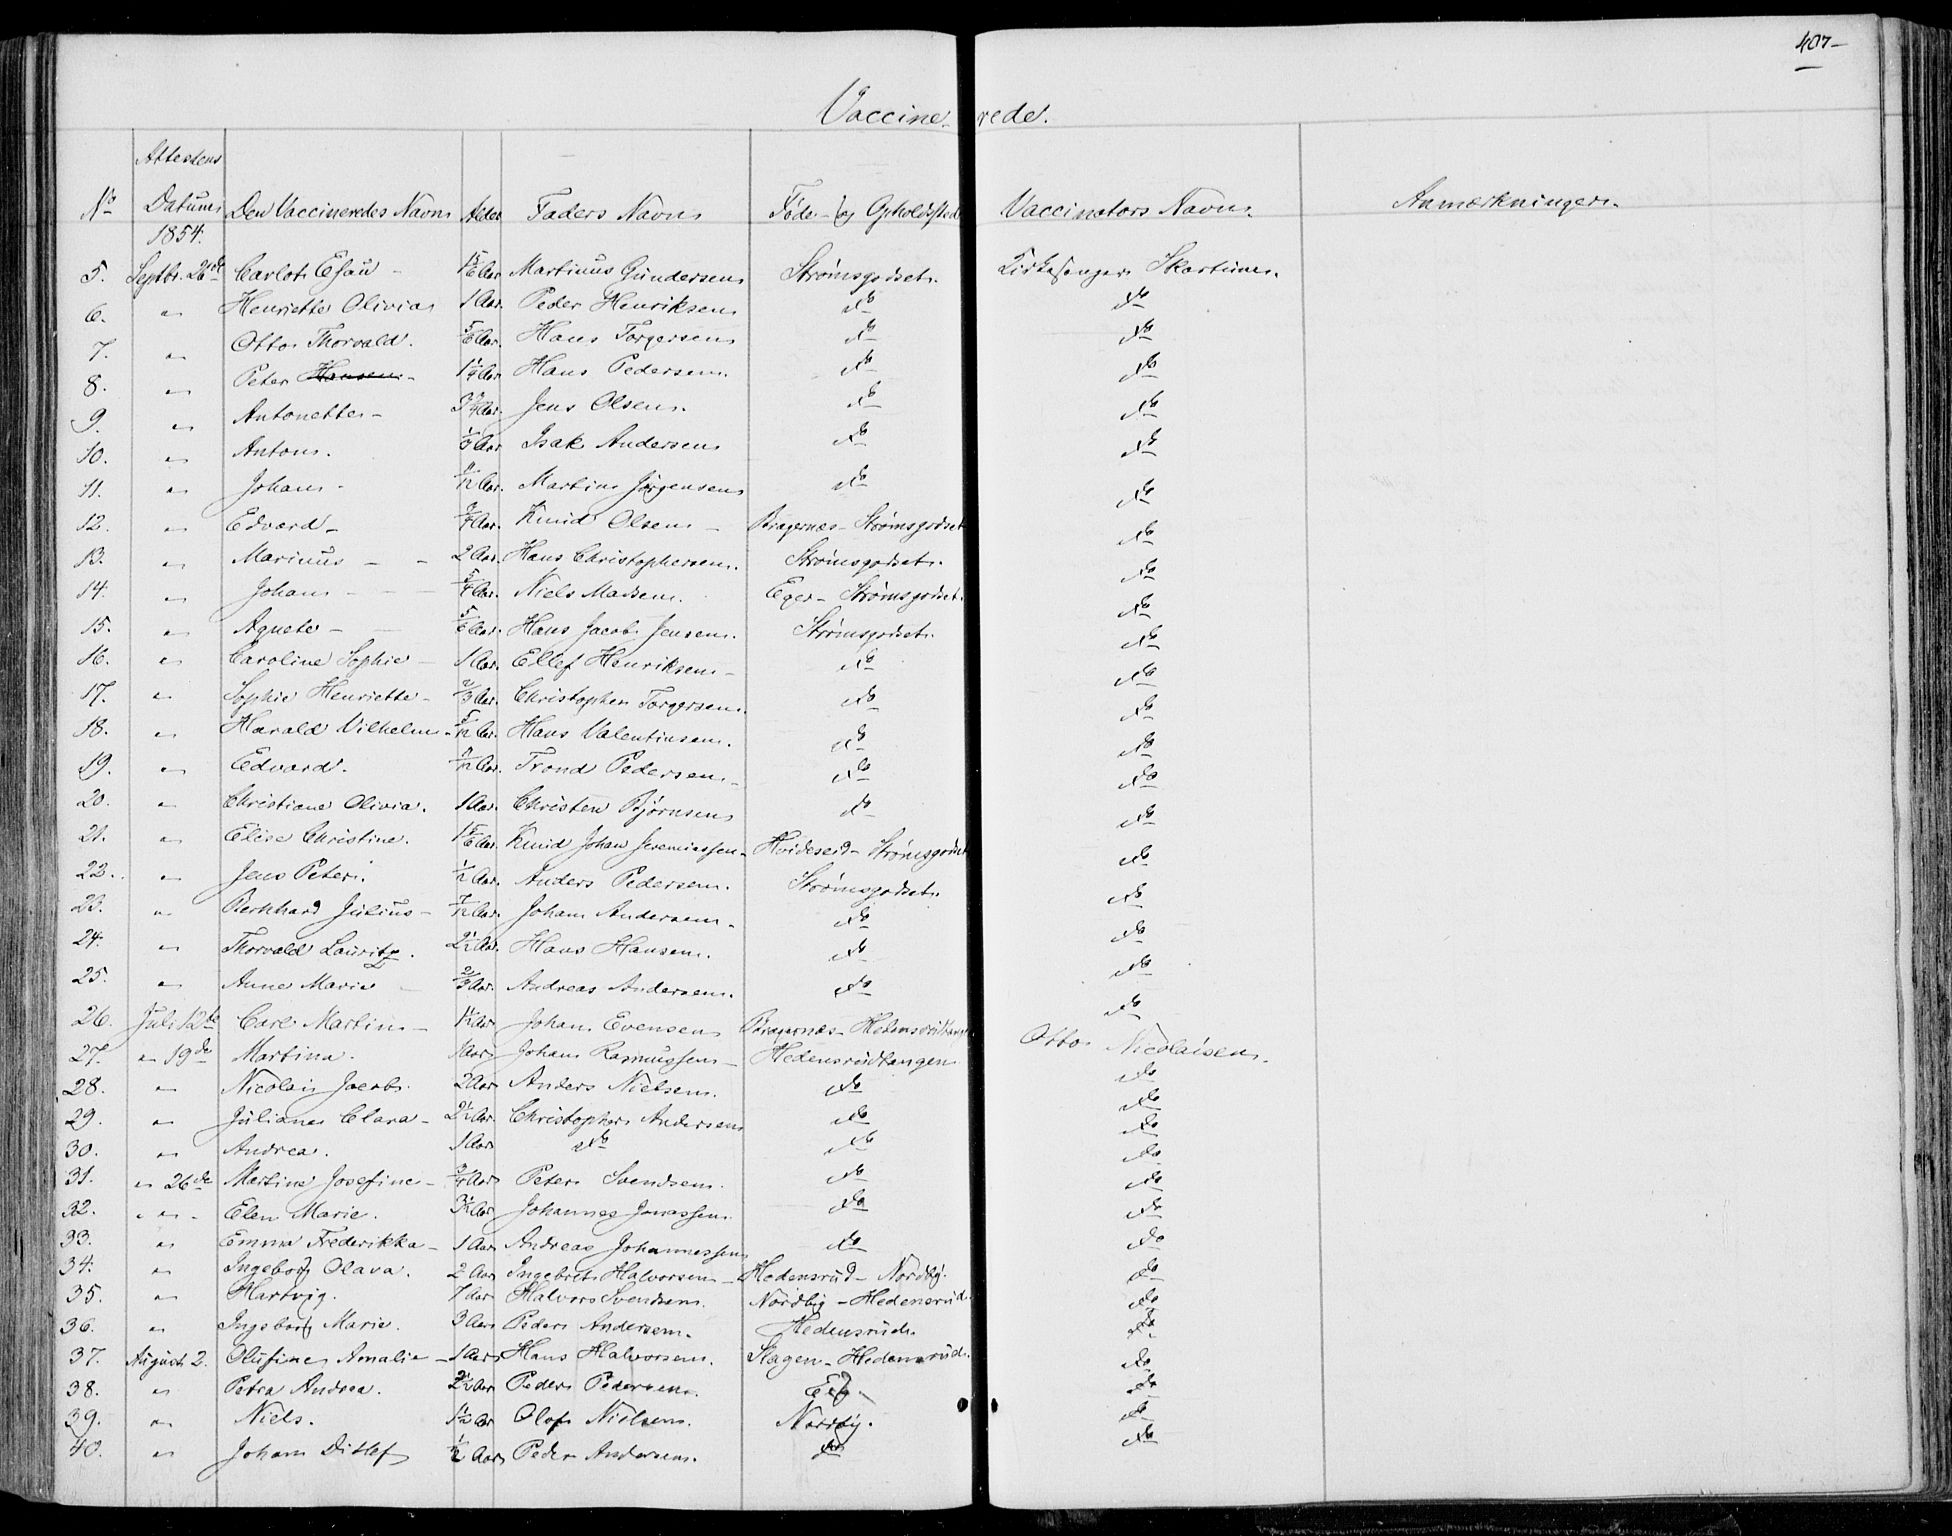 407-
Vaccinerede.
No Attestens Datum Den Vaccineredes Navn Alder Faders Navn Føde- og Opholdssted Vaccinators Navn. Anmærkninger.
1854.
5. Septbr. 26de Carlot Esau - 1 5/6 Aar Martinus Gundersen Strømsgodset. Kirkesanger Skartum.
6. " Henriette Olivia 1 Aar. Peder Henriksen do do
7. " Otto Thorvald. 5/6 Aar. Hans Torgersen do do
8. " Peter Hansen - 1 1/4 Aar Hans Pedersen. do do
9. " Antonette - Aar. Jens Olsen. do do
10. " Anton. Aar Isak Andersen do do
11. " Johan - 11/12 Aar. Martin Jørgensen do do
12. " Edvard - 3/4 Aar. Knud Olsen - Bragernæs - Strømsgodset do
13. " Marinus - - 2 Aar. Hans Christophersen. Strømsgodset. do
14. " Johan - - - Aar. Niels Madsen. Eger - Strømsgodset. do
15. " Agnete - 5/6 Aar. Hans Jacob Jensen. Strømsgodset. do
16. " Caroline Sophie - 1 Aar. Ellef Henriksen - do do
17. " Sophie Henriette - 2/3 Aar. Christopher Torgersen. do do
18. " Harald Vilhelm - 5/12 Aar. Hans Valentinsen. do do
19. " Edvard. 7/12 Aar. Trond Pedersen - do do
20. " Christiane Olivia. 1 Aar. Christen Bjørnsen do do
21. " Elise Christine. 1 5/6 Aar. Knud Johan Jeremiassen - Hvideseid - Strømsgodset do
22. " Jens Peter. 1/2 Aar. Anders Pedersen. Strømsgodset. do
23. " Berkhard Julius - 7/12 Aar. Johan Andersen - do do
24. " Thorvald Lauritz. 2 1/2 Aar. Hans Hansen. do do
25. " Anne Marie - 2/3 Aar. Andreas Andersen. do do
26. Juli 12te Carl Martin - 1 1/2 Aar Johan Evensen Bragernæs - Hedensrudtangen do
27. " 19de Martina. 1 Aar Johan Rasmussen - Hedensrudtangen Otto Nicolaisen.
28. " Nicolai Jacob. 2 Aar Anders Nielsen. do do
29. " Juliane Clara - 2 1/2 Aar. Christopher Andersen do do
30. " Andrea. 1 Aar do do do
31. " 26de Martine Josefine - 3/4 Aar Peter Svendsen. do do
32. " Elen Marie. 3 1/2 Aar Johannes Jonassen. do do
33. " Emma Frederikka - 1 Aar Andreas Johannessen do do
34. " Ingeborg Olava. 2 Aar Ingebret Halvorsen - Hedensrud - Nordby. do
35. " Hartvig. 1 Aar Halvor Svendsen. Nordby - Hedensrud. do
36. " Ingeborg Marie. 3 Aar Peder Andersen. Hedensrud. do
37. August 2. Olufine Amalie - 1 Aar Hans Halvorsen. Stagen - Hedensrud. do
38. " Petra Andrea. 2 1/2 Aar Peder Pedersen. do
39. " Niels. 1 1/2 Aar Olof Nielsen. Nordby. do
40. " Johan Ditlef 1/2 Aar Peder Andersen. do do